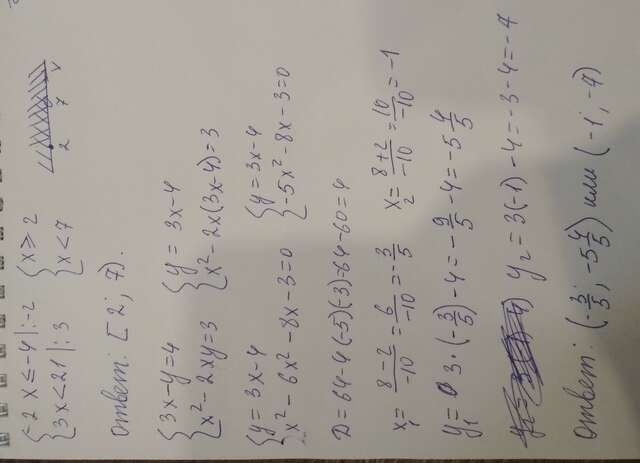 {-2x≤-4|:-2 {x≥2
{3x<21|:3 {x<7
2 7 x
Ответ: [2; 7).
{3x-y=4 {y=3x-4
{x²-2xy=3 {x²-2x(3x-4)=3
{y=3x-4 {y=3x-4
{x²-6x²-8x-3=0 {-5x²-8x-3=0
D=64-4(-5)(-3)=64-60=4
x₁=8-2/-10=6/-10=-3/5 x₂=8+2/-10=10/-10=-1
y₁=3·(-3/5)-4=-9/5-4=-5 4/5
y₂=3(-1)-4=-3-4=-7
Ответ: (-3/5; -5 4/5) или (-1; -7)